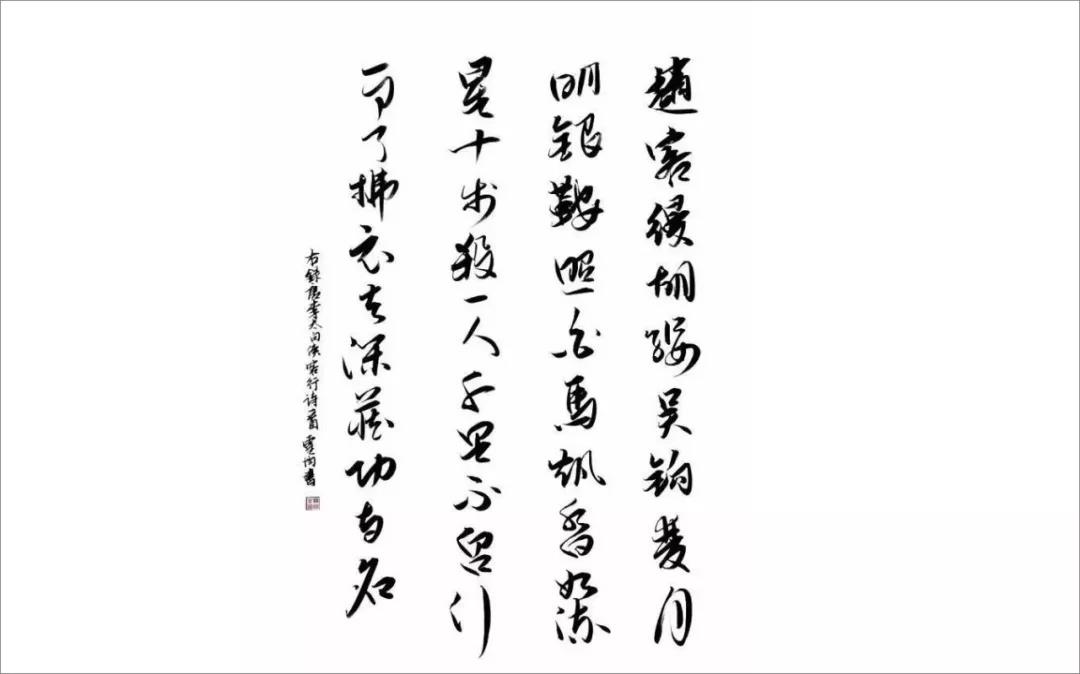 趙客縵胡纓吳鈎月
明銀鞍照白馬颯沓如流
星十步殺一人千里不留行
事了拂衣去深藏功与名
右錄唐李太白俠客行诗 書